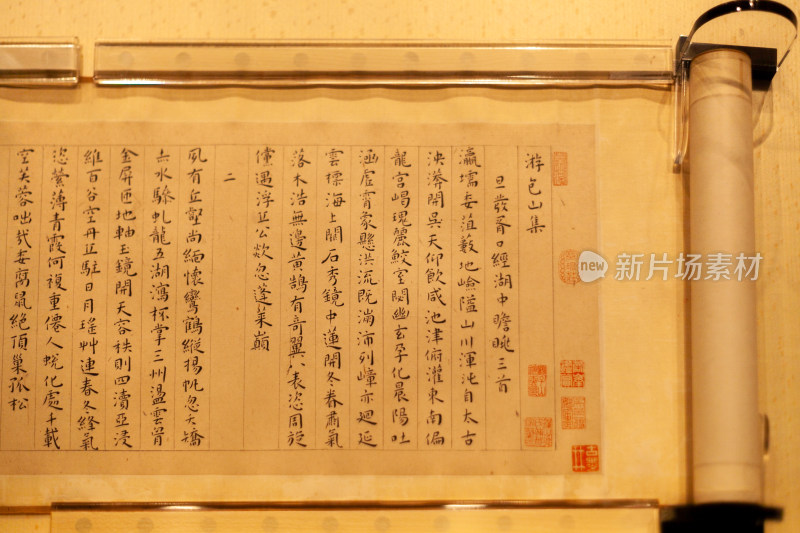 游包山集
旦發胥口經湖中瞻眺三首
瀛壖委菹藪地嶮隘山川渾沌自太古
泱漭開吳天仰飲咸池津俯灌東南偏
龍宮嵑瑰麗鮫室閟幽玄孕化晨陽吐
涵虛霄象懸洪流既滿沛列嶂亦廻延
雲標海上闕石秀鏡中蓮開冬春肅氣
落木浩無邊黃鵠有奇翼八表恣周旋
儻遇浮丘公欻忽蓬萊巔
二
夙有丘壑尚緬懷鸞鶴縱揚帆忽天矯
去水驂虬龍五湖瀉標掌三州溫雲胥
金屏匝地軸玉鏡開天容秩則四瀆亞浸
維百谷空丹丘駐日月瑤艸連春冬絳氣
恣縈薄青霞何複重僊人蛻化處千載
空芙蓉咄哉委窩鼠絕頂巢孤松
new
视觉中国